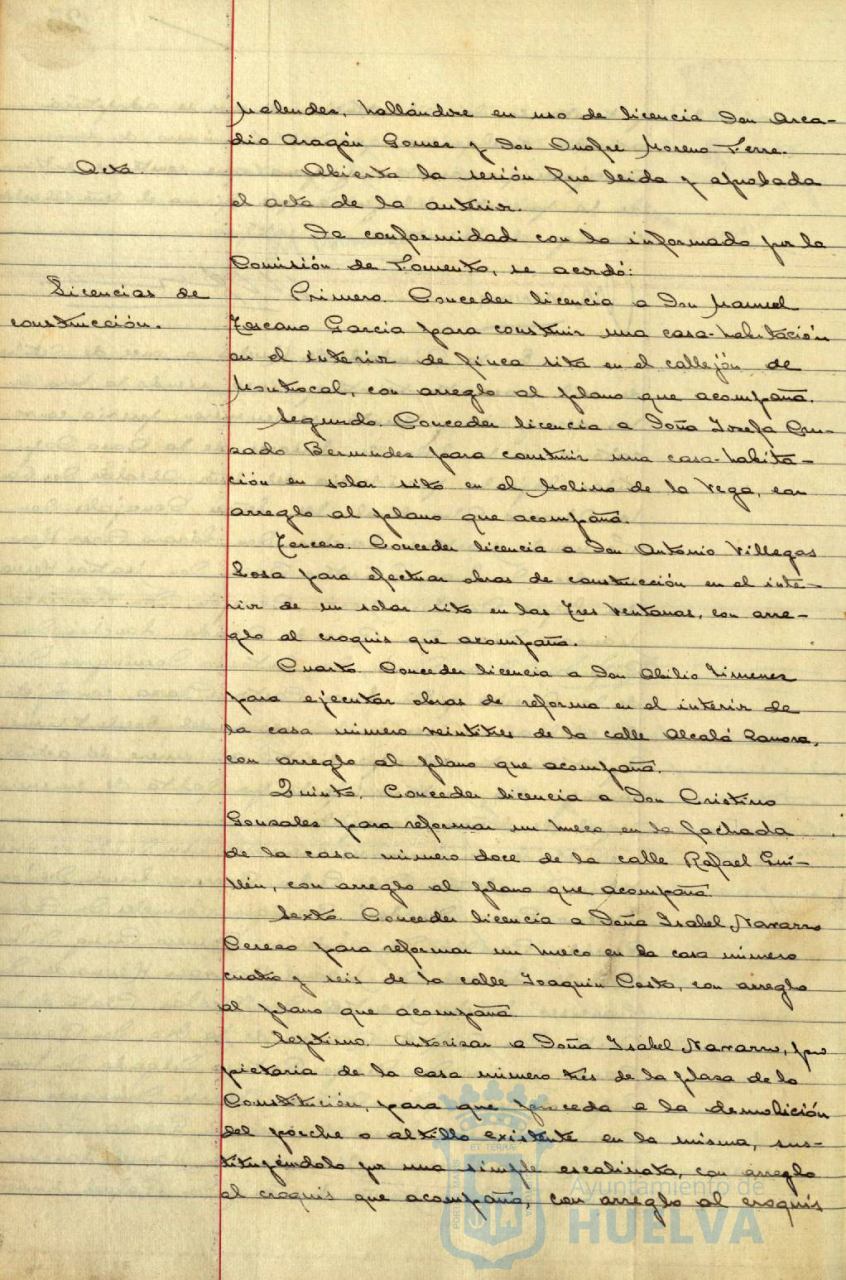 Melendez, hallándose en uso de licencia Don Arca-
dio Aragón Gomez y Don Onofre Moreno Ferre.
Acta. Abierta la sesión fue leida y aprobada
el acta de la anterior.
De conformidad con lo informado por la
Comisión de Fomento, se acordó:
Licencias de construcción.
Primero. Conceder licencia a Don Manuel
Toscano Garcia para construir una casa-habitación
en el interior de finca sita en el callejón de
Montrocal, con arreglo al plano que acompaña.
Segundo. Conceder licencia a Doña Josefa Cru-
zado Bermudez para construir una casa-habita-
ción en solar sito en el Molino de la Vega, con
arreglo al plano que acompaña.
Tercero. Conceder licencia a Don Antonio Villegas
Sosa para efectuar obras de construcción en el inte-
rior de un solar sito en las Tres Ventanas, con arre-
glo al croquis que acompaña.
Cuarto. Conceder licencia a Don Abilio Jimenez
para ejecutar obras de reforma en el interior de
la casa número veintitres de la calle Alcalá Zamora,
con arreglo al plano que acompaña.
Quinto. Conceder licencia a Don Cristino
Gonzalez para reformar un hueco en la fachada
de la casa número doce de la calle Rafael Gui-
llén, con arreglo al plano que acompaña.
Sexto. Conceder licencia a Doña Isabel Navarro
Cerezo para reformar un hueco en la casa número
cuatro y seis de la calle Joaquin Costa, con arreglo
al plano que acompaña
Septimo. Autorizar a Doña Isabel Navarro, pro
pietaria de la casa número tres de la plaza de la
Constitución, para que proceda a la demolición
del porche o altillo existente en la misma, sus-
tituyéndolo por una simple escalinata, con arreglo
al croquis que acompaña, con arreglo al croquis
Ayuntamiento de
HUELVA